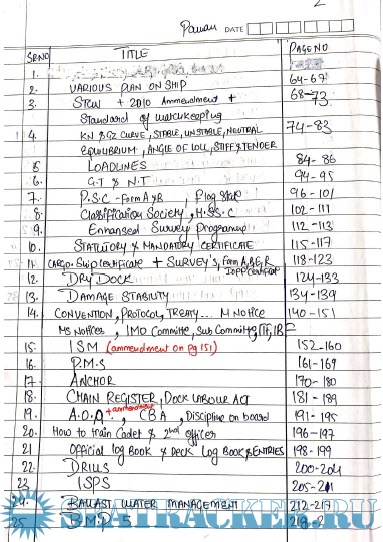 2
Pawan DATE
SR.NO TITLE PAGE NO
1.
2. VARIOUS PLAN ON SHIP 64-67
3. STCW + 2010 Ammendment + 68-73
Standard of watchkeeping
4. KN & GZ CURVE, STABLE, UNSTABLE, NEUTRAL 74-83
EQUILIBRIUM, ANGLE OF LOLL, STIFF & TENDER
5 LOADLINES 84-86
6. G.T & N.T 94-95
7. P.S.C - Form A & B, Flag State 96-101
8. Classification Society, H.SS.C 102-111
9. Enhanced Survey Programme 112-113
10. STATUTORY & MANDATORY CERTIFICATE 115-117
11. CARGO Ship certificate + SURVEY'S, Form A, B, E, R 118-123
IOPP certificate
12. DRY DOCK 124-133
13. DAMAGE STABILITY 134-139
14. CONVENTION, PROTOCOL, TREATY... M Notice 140-151
MS Notices, IMO Committe, Sub Committe,
15. ISM (ammendment on pg 151) 152-160
16. P.M.S 161-169
17. ANCHOR 170-180
18. CHAIN REGISTER, DOCK LABOUR ACT 181-189
19. A.O.A + ammendment, CBA, Discipline on board 191-195
20. How to train Cadet & 2nd officer 196-197
21 Official log Book & Deck Log Book & ENTRIES 198-199
22. DRILLS 200-204
23 ISPS 205-211
24. BALLAST WATER MANAGEMENT 212-217
25 B.M.P-5 218-2
SEATRACKER.RU